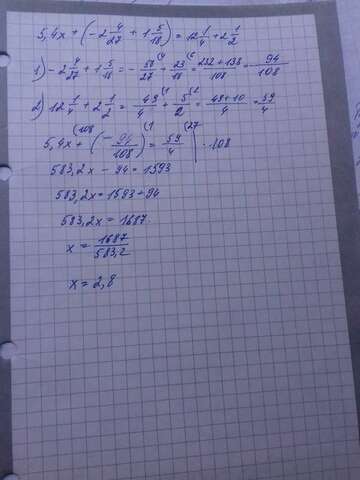 5,4x + (-2 4/27 + 1 5/18) = 12 1/4 + 2 1/2
1) -2 4/27 + 1 5/18 = -58/27 (4 + 23/18 (6 = 232 + 138/108 = -94/108
2) 12 1/4 + 2 1/2 = 49/4 (1 + 5/2 (2 = 49 + 10/4 = 59/4
5,4x (108 + (-94/108) (1 = 59/4 (27 | · 108
583,2x - 94 = 1593
583,2x = 1593 + 94
583,2x = 1687
x = 1687/583,2
x = 2,8